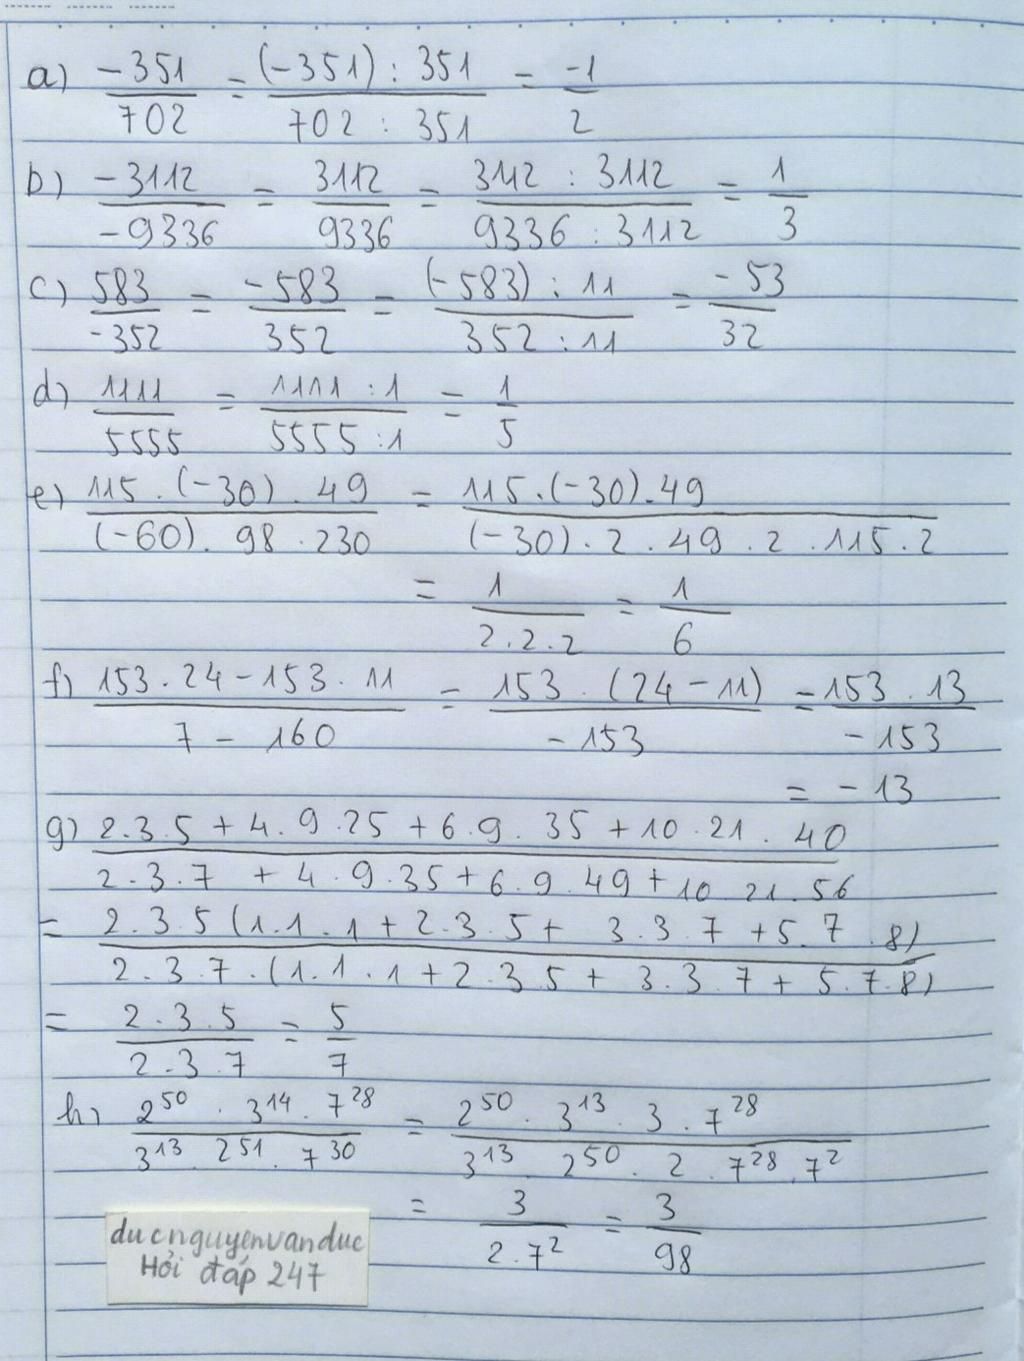 a) -351/702 = (-351) : 351/702 : 351 = -1/2
b) -3112/-9336 = 3112/9336 = 3112 : 3112/9336 : 3112 = 1/3
c) 583/-352 = -583/352 = (-583) : 11/352 : 11 = -53/32
d) 1111/5555 = 1111 : 1/5555 : 1 = 1/5
e) 115 . (-30) . 49/(-60) . 98 . 230 = 115 . (-30) . 49/(-30) . 2 . 49 . 2 . 115 . 2
= 1/2 . 2 . 2 = 1/6
f) 153 . 24 - 153 . 11/7 - 160 = 153 . (24 - 11)/-153 = 153 . 13/-153
= -13
g) 2.3.5 + 4.9.25 + 6.9.35 + 10.21.40/2.3.7 + 4.9.35 + 6.9.49 + 10 21.56
= 2.3.5 (1.1.1 + 2.3.5 + 3.3.7 + 5.7.8)/2.3.7.(1.1.1 + 2.3.5 + 3.3.7 + 5.7.8)
= 2.3.5/2.3.7 = 5/7
h) 2⁵⁰ . 3¹⁴ . 7²⁸/3¹³ . 2⁵¹ . 7³⁰ = 2⁵⁰ . 3¹³ . 3 . 7²⁸/3¹³ . 2⁵⁰ . 2 . 7²⁸ . 7²
= 3/2.7² = 3/98
ducnguyenvanduc
Hỏi đáp 247